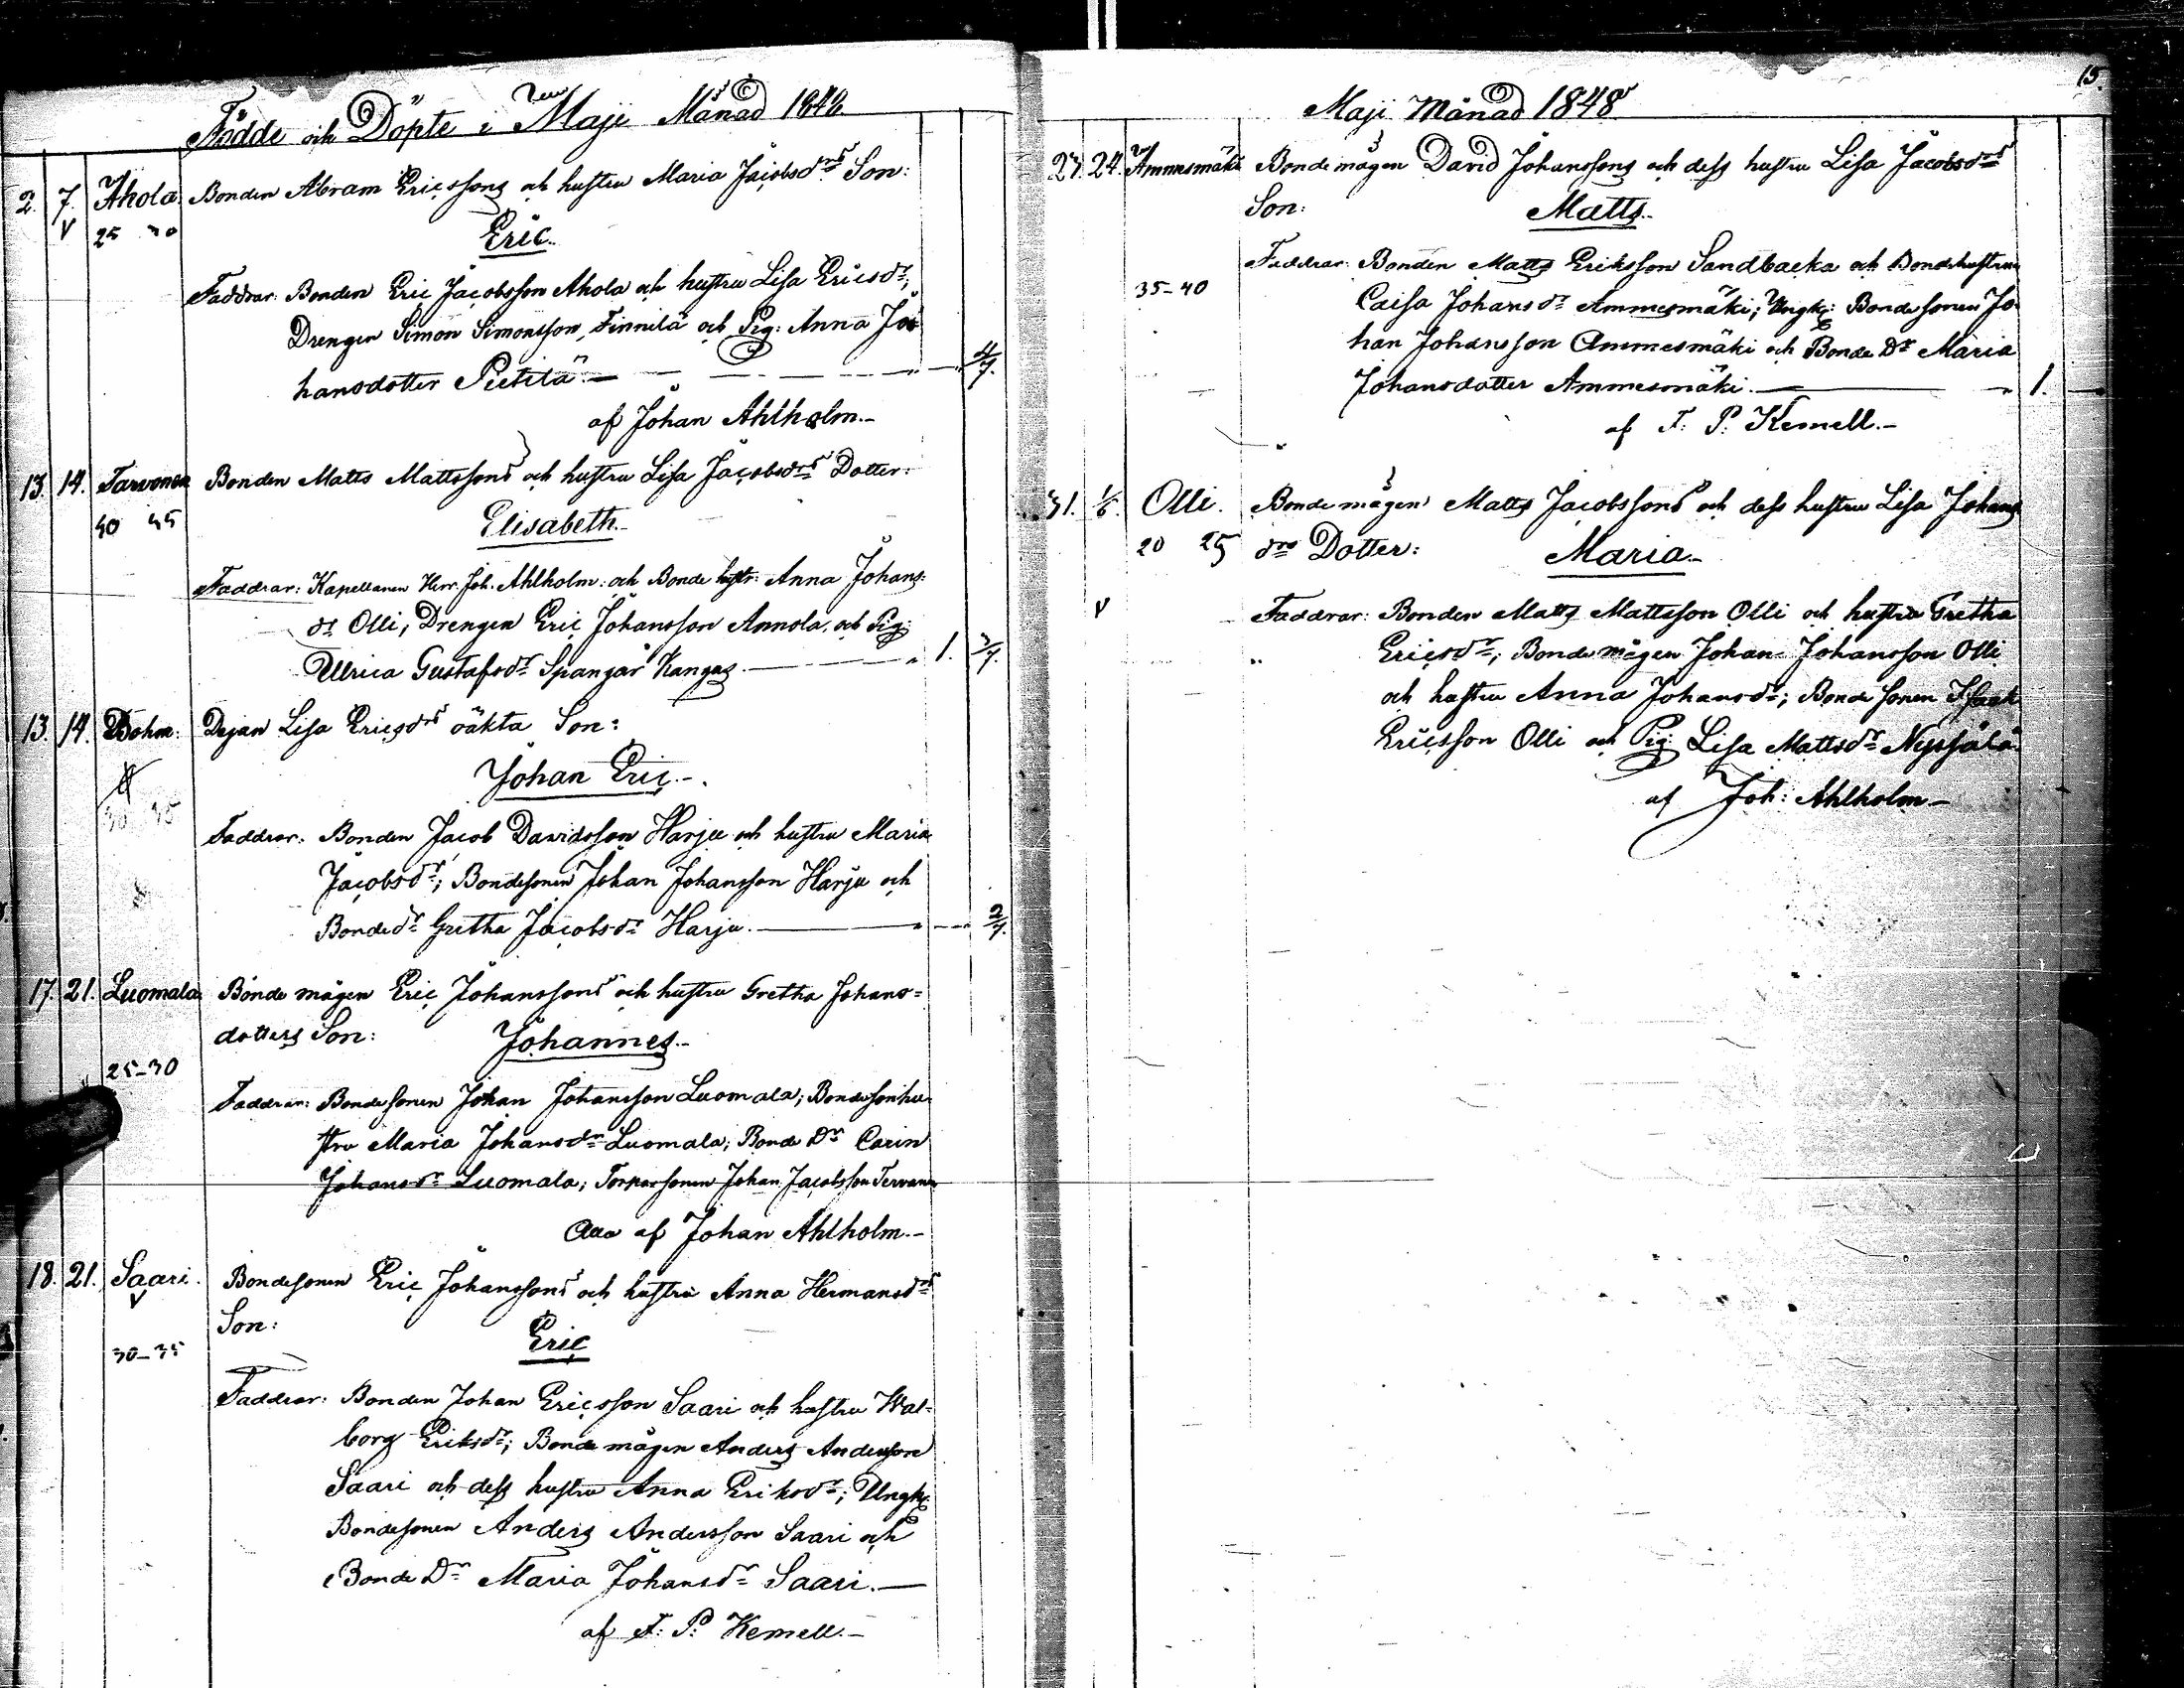 Födde och Döpte i Maji Månad 1848.
2. 7. Ahola. Bonden Abram Ericssons och hustru Maria Jacobsdrs Son:
V 25 30 Eric.
Faddrar: Bonden Eric Jacobsson Ahola och hustru Lisa Ericsdr,
Drengen Simon Simonsson Finnilä och Pig: Anna Jo-
hansdotter Pietilä. 4/7.
af Johan Ahlholm.
13. 14. Tarvonen Bonden Matts Mattssons och hustru Lisa Jacobsdrs Dotter:
40 45 Elisabeth.
Faddrar: Kapellanen Herr Joh. Ahlholm: och Bonde hustr: Anna Johans:
dr Olli, Drengen Eric Johansson Annola, och Pig:
Ullrica Gustafsdr Spangar Kangas. 1. 3/7.
13. 14. Bohm. Dejan Lisa Ericsdrs oäkta Son:
30 35 Johan Eric.
Faddrar: Bonden Jacob Davidsson Harju och hustru Maria
Jacobsdr; Bondesonen Johan Johansson Harju och
Bondedr Gretha Jacobsdr Harju. 2/7.
17. 21. Luomala Bonde mågen Eric Johanssons och hustru Gretha Johans=
dotters Son: Johannes.
25-30
Faddrar: Bondesonen Johan Johansson Luomala; Bondesonhu-
stru Maria Johansdr Luomala; Bonde Dr Carin
Johansdr Luomala; Torparsonen Johan Jacobsson
af Johan Ahlholm.
18. 21. Saari. Bondesonen Eric Johanssons och hustru Anna Hermansdrs
V Son:
30-35 Eric
Faddrar: Bonden Johan Ericsson Saari och hustru Wal=
borg Eriksdr; Bonde mågen Anders Andersson
Saari och dess hustru Anna Eriksdr; Ungk:
Bondesonen Anders Andersson Saari och
Bonde Dr Maria Johansdr Saari.
af F: P: Kemell.
15.
Maji Månad 1848
23. 24. Ammesmäki Bonde mågen David Johanssons och dess hustru Lisa Jacobsdrs
Son: Matts.
Faddrar: Bonden Matts Eriksson Sandbacka och Bondehustrun
35-40
Caisa Johansdr Ammesmäki; Ungk: Bondesonen Jo-
han Johansson Ammesmäki och Bonde Dr Maria
Johansdotter Ammesmäki. 1.
af F: P: Kemell.
31. 1/6. Olli. Bonde mågen Matts Jacobssons och dess hustru Lisa Johans
20 25 drs Dotter: Maria.
V Faddrar: Bonden Matts Mattsson Olli och hustru Gretha
Ericsdr; Bonde mågen Johan Johansson Olli
och hustru Anna Johansdr; Bonde sonen Isaak
Ericsson Olli och Pig: Lisa Mattsdr Nyssölä.
af Joh: Ahlholm